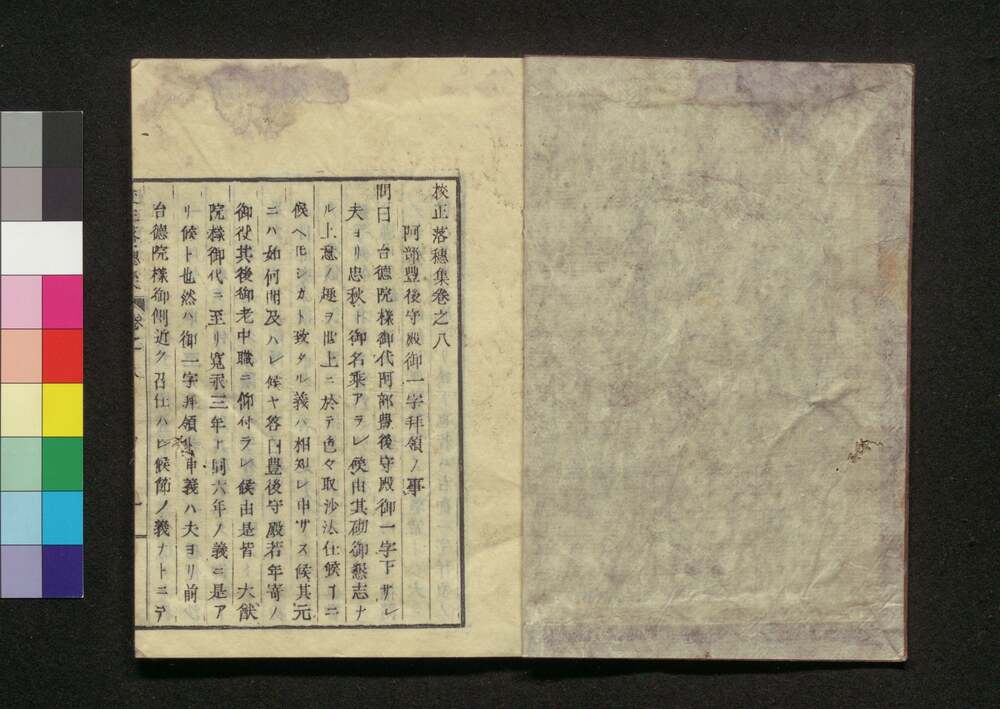 校正落穂集巻之八
阿部豊後守殿御一字拝領ノ事
問曰 台徳院様御代阿部豊後守殿御一字下サレ
夫ヨリ忠秋ト御名乘アラレ候由其砌御懇志ナ
ル上意ノ趣ヲ世上ニ於テ色々取沙汰仕候
候ヘモシカト致タル義ハ相知レ申サス候其元
ニハ如何聞及ハレ候ヤ答曰豊後守殿若年寄ノ
御役其後御老中職ニ仰付ラレ候由是皆 大猷
院様御代ニ至リ寛永三年ヨリ同六年ノ義ニ是ア
リ候ト也然ハ御一字拝領ノ申義ハ夫ヨリ前
台徳院様御側近ク召仕ハレ候節ノ義ナトニテ